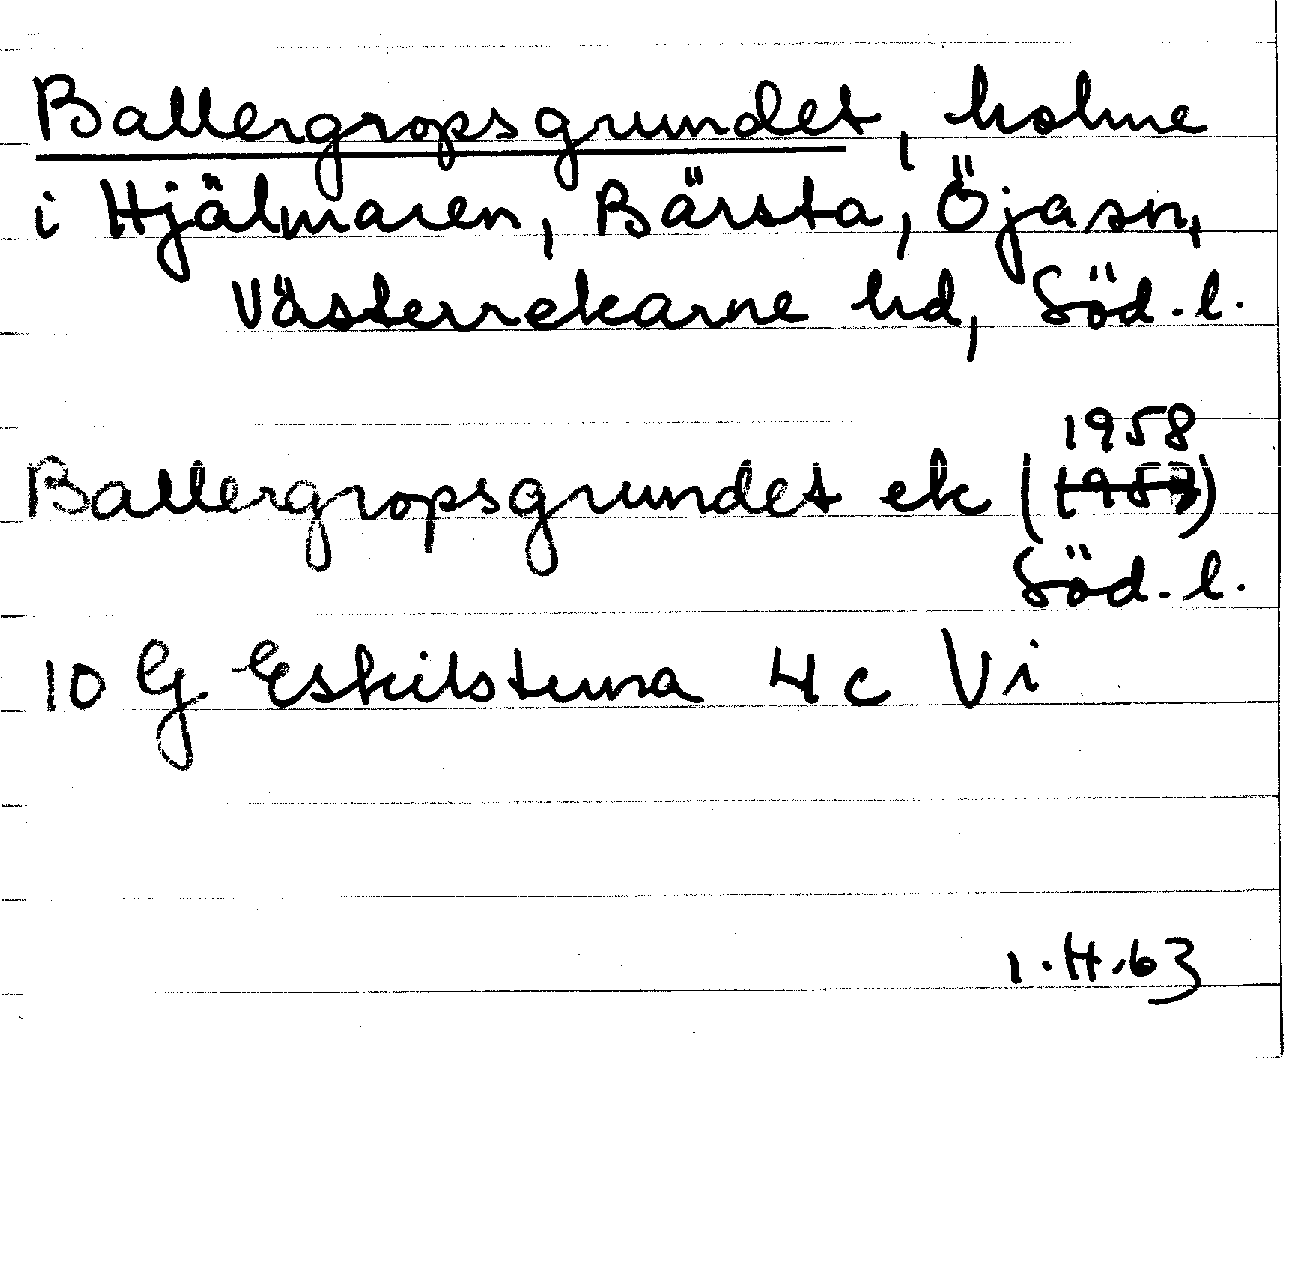 Ballergropsgrundet, holme
i Hjälmaren, Bärsta, Öja sn,
Västerrekarne hd, Söd. l.
1958
Ballergropsgrundet ek (1953)
Söd. l.
10 G Eskilstuna 4c Vi
1.H.63